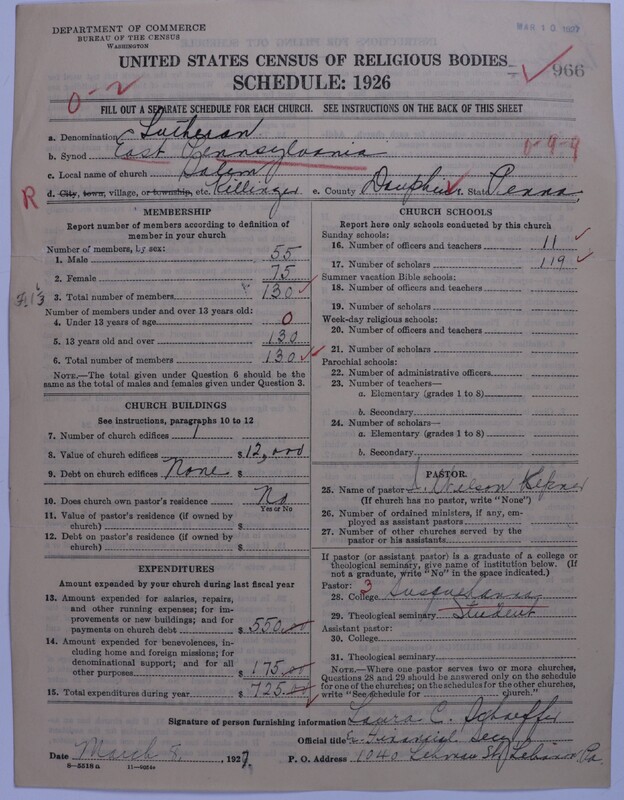 DEPARTMENT OF COMMERCE
BUREAU OF THE CENSUS
WASHINGTON
UNITED STATES CENSUS OF RELIGIOUS BODIES
966
SCHEDULE: 1926
0-2
FILL OUT A SEPARATE SCHEDULE FOR EACH CHURCH. SEE INSTRUCTIONS ON THE BACK OF THIS SHEET
a. Denomination Lutheran
b. Synod East Pennsylvania 0-9-9
c. Local name of church Salem
R d. City, town, village, or township, etc. Killinger e. County Dauphin f. State Penna
MEMBERSHIP
Report number of members according to definition of
member in your church
Number of members, by sex:
1. Male 55
2. Female 75
3. Total number of members 130
Number of members under and over 13 years old:
4. Under 13 years of age 0
5. 13 years old and over 130
6. Total number of members 130
NOTE.—The total given under Question 6 should be the
same as the total of males and females given under Question 3.
CHURCH BUILDINGS
See instructions, paragraphs 10 to 12
7. Number of church edifices 1
8. Value of church edifices $ 12,000
9. Debt on church edifices None $
10. Does church own pastor's residence No
Yes or No
11. Value of pastor's residence (if owned by
church) $
12. Debt on pastor's residence (if owned by
church) $
EXPENDITURES
Amount expended by your church during last fiscal year
13. Amount expended for salaries, repairs,
and other running expenses; for im-
provements or new buildings; and for
payments on church debt $ 550.00
14. Amount expended for benevolences, in-
cluding home and foreign missions; for
denominational support; and for all
other purposes $ 175.00
15. Total expenditures during year $ 725.00
CHURCH SCHOOLS
Report here only schools conducted by this church
Sunday schools:
16. Number of officers and teachers 11
17. Number of scholars 119
Summer vacation Bible schools:
18. Number of officers and teachers
19. Number of scholars
Week-day religious schools:
20. Number of officers and teachers
21. Number of scholars
Parochial schools:
22. Number of administrative officers
23. Number of teachers—
a. Elementary (grades 1 to 8)
b. Secondary
24. Number of scholars—
a. Elementary (grades 1 to 8)
b. Secondary
PASTOR
25. Name of pastor Wilson Kepner
(If church has no pastor, write "None")
26. Number of ordained ministers, if any, em-
ployed as assistant pastors
27. Number of other churches served by the
pastor or his assistants
If pastor (or assistant pastor) is a graduate of a college or
theological seminary, give name of institution below. (If
not a graduate, write "No" in the space indicated.)
Pastor: 3
28. College Susquehanna
29. Theological seminary Student
Assistant pastor:
30. College
31. Theological seminary
NOTE.—Where one pastor serves two or more churches,
Questions 28 and 29 should be answered only on the schedule
for one of the churches; on the schedules for the other churches,
write "See schedule for church."
Signature of person furnishing information Laura C. Schaeffer
Official title Financial Secy
Date March 8, 1927. P. O. Address 1040 Lehman St Lebanon Pa.
8-5518a 11-8024